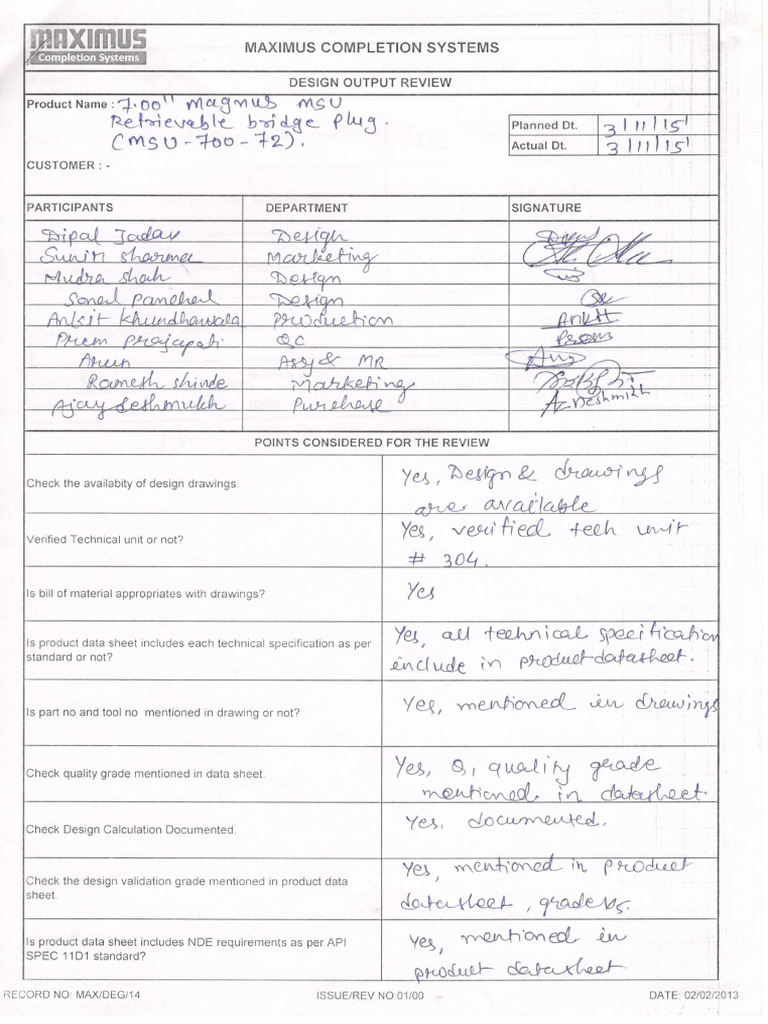 MAXIMUS
Completion Systems
MAXIMUS COMPLETION SYSTEMS
DESIGN OUTPUT REVIEW
Product Name : 7.00" Magnus MSU
Retrievable bridge plug.
(MSU-700-72).
Planned Dt. 3/11/15
Actual Dt. 3/11/15
CUSTOMER : -
PARTICIPANTS DEPARTMENT SIGNATURE
Dipal Jadav Design
Sunir Sharma Marketing
Mudra Shah Design
Sonal Panchal Design
Ankit Khundhawala Production Ankit
Prem Prajapati QC Prem
Arun Assy & MR
Ramesh Shinde Marketing
Ajay Deshmukh Purchase A.Z.Deshmukh
POINTS CONSIDERED FOR THE REVIEW
Check the availabity of design drawings. Yes, Design & drawings
are available
Verified Technical unit or not? Yes, verified tech unit
# 304.
Is bill of material appropriates with drawings? Yes
Is product data sheet includes each technical specification as per
standard or not? Yes, all technical specification
include in product datasheet.
Is part no and tool no mentioned in drawing or not? Yes, mentioned in drawings
Check quality grade mentioned in data sheet. Yes, Q1 quality grade
mentioned in datasheet.
Check Design Calculation Documented. Yes, documented.
Check the design validation grade mentioned in product data
sheet. Yes, mentioned in product
datasheet, grade V5.
Is product data sheet includes NDE requirements as per API
SPEC 11D1 standard? Yes, mentioned in
product datasheet.
RECORD NO: MAX/DEG/14 ISSUE/REV NO:01/00 DATE: 02/02/2013